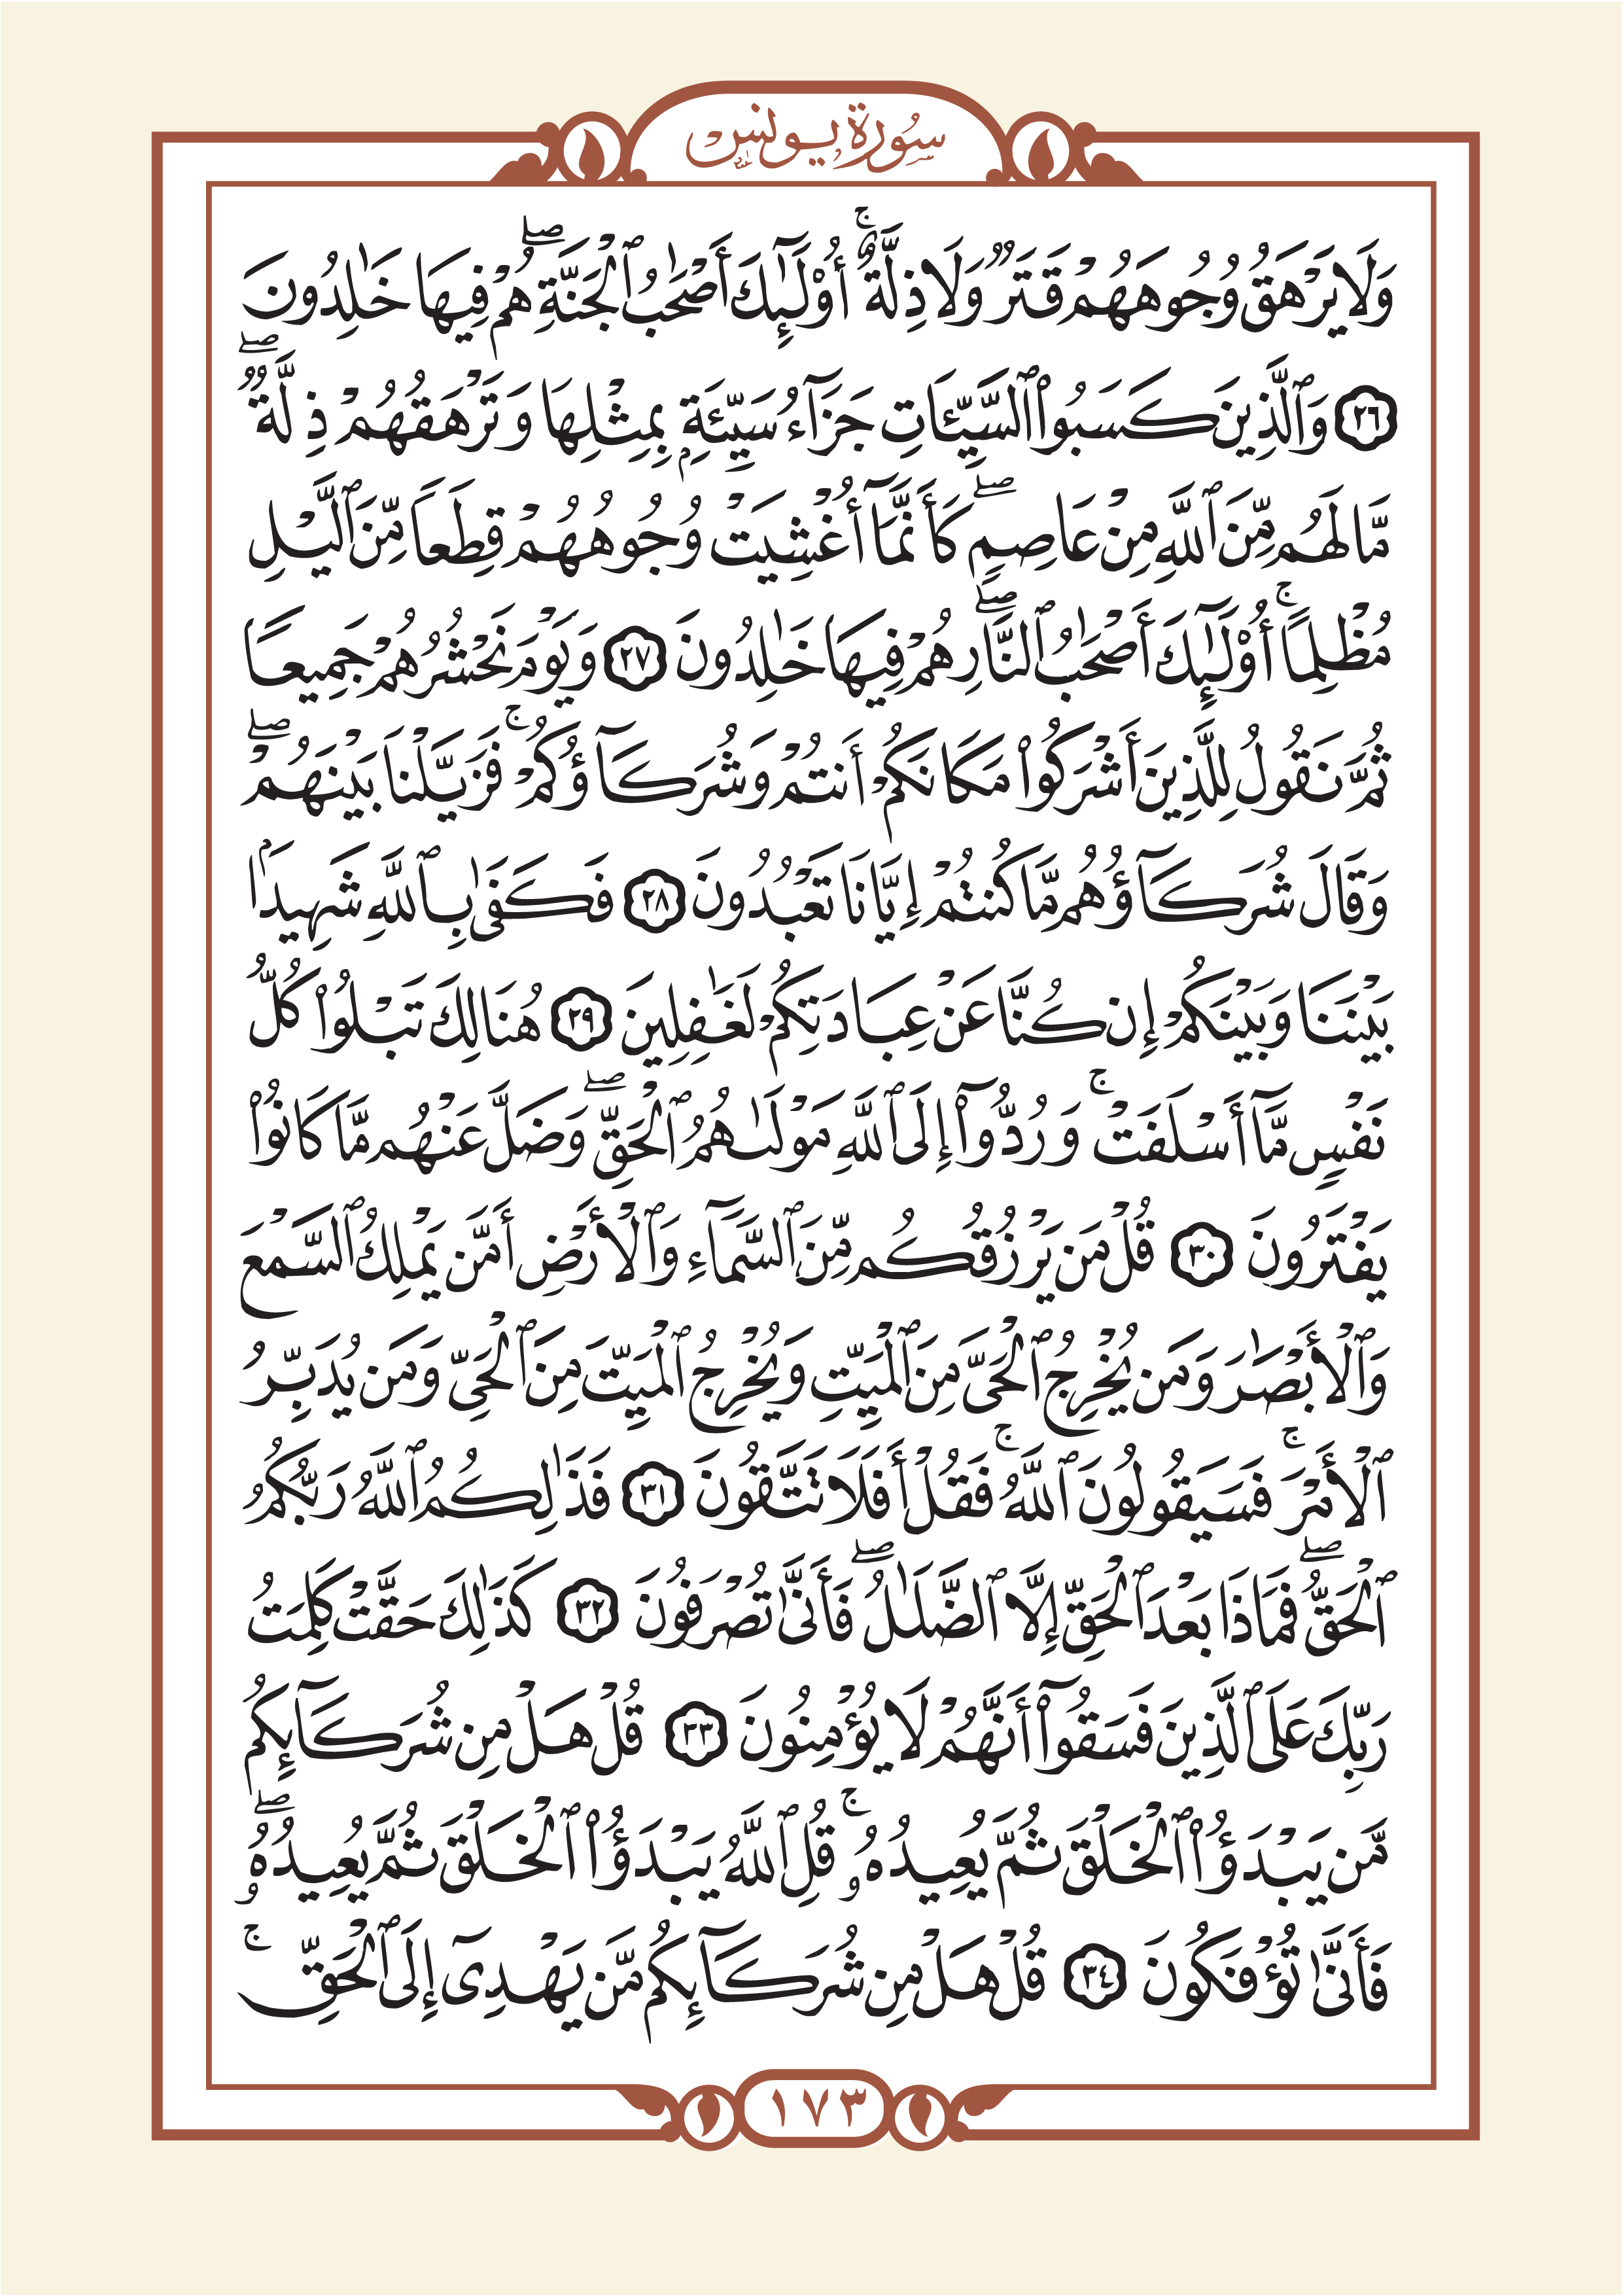 سُورَةُ يُونُس
وَلَا يَرْهَقُ وُجُوهَهُمْ قَتَرٌ وَلَا ذِلَّةٌ ۚ أُوْلَٰٓئِكَ أَصْحَٰبُ ٱلْجَنَّةِ ۖ هُمْ فِيهَا خَٰلِدُونَ
٢٦ وَٱلَّذِينَ كَسَبُوا۟ ٱلسَّيِّـَٔاتِ جَزَآءُ سَيِّئَةٍۭ بِمِثْلِهَا وَتَرْهَقُهُمْ ذِلَّةٌ ۖ
مَّا لَهُم مِّنَ ٱللَّهِ مِنْ عَاصِمٍ ۖ كَأَنَّمَآ أُغْشِيَتْ وُجُوهُهُمْ قِطَعًا مِّنَ ٱلَّيْلِ
مُظْلِمًا ۚ أُوْلَٰٓئِكَ أَصْحَٰبُ ٱلنَّارِ ۖ هُمْ فِيهَا خَٰلِدُونَ ٢٧ وَيَوْمَ نَحْشُرُهُمْ جَمِيعًا
ثُمَّ نَقُولُ لِلَّذِينَ أَشْرَكُوا۟ مَكَانَكُمْ أَنتُمْ وَشُرَكَآؤُكُمْ ۚ فَزَيَّلْنَا بَيْنَهُمْ ۖ
وَقَالَ شُرَكَآؤُهُم مَّا كُنتُمْ إِيَّانَا تَعْبُدُونَ ٢٨ فَكَفَىٰ بِٱللَّهِ شَهِيدًۢا
بَيْنَنَا وَبَيْنَكُمْ إِن كُنَّا عَنْ عِبَادَتِكُمْ لَغَٰفِلِينَ ٢٩ هُنَالِكَ تَبْلُوا۟ كُلُّ
نَفْسٍ مَّآ أَسْلَفَتْ ۚ وَرُدُّوٓا۟ إِلَى ٱللَّهِ مَوْلَىٰهُمُ ٱلْحَقِّ ۖ وَضَلَّ عَنْهُم مَّا كَانُوا۟
يَفْتَرُونَ ٣٠ قُلْ مَن يَرْزُقُكُم مِّنَ ٱلسَّمَآءِ وَٱلْأَرْضِ أَمَّن يَمْلِكُ ٱلسَّمْعَ
وَٱلْأَبْصَٰرَ وَمَن يُخْرِجُ ٱلْحَىَّ مِنَ ٱلْمَيِّتِ وَيُخْرِجُ ٱلْمَيِّتَ مِنَ ٱلْحَىِّ وَمَن يُدَبِّرُ
ٱلْأَمْرَ ۚ فَسَيَقُولُونَ ٱللَّهُ ۚ فَقُلْ أَفَلَا تَتَّقُونَ ٣١ فَذَٰلِكُمُ ٱللَّهُ رَبُّكُمُ
ٱلْحَقُّ ۖ فَمَاذَا بَعْدَ ٱلْحَقِّ إِلَّا ٱلضَّلَٰلُ ۖ فَأَنَّىٰ تُصْرَفُونَ ٣٢ كَذَٰلِكَ حَقَّتْ كَلِمَتُ
رَبِّكَ عَلَى ٱلَّذِينَ فَسَقُوٓا۟ أَنَّهُمْ لَا يُؤْمِنُونَ ٣٣ قُلْ هَلْ مِن شُرَكَآئِكُم
مَّن يَبْدَؤُا۟ ٱلْخَلْقَ ثُمَّ يُعِيدُهُۥ ۚ قُلِ ٱللَّهُ يَبْدَؤُا۟ ٱلْخَلْقَ ثُمَّ يُعِيدُهُۥ ۖ
فَأَنَّىٰ تُؤْفَكُونَ ٣٤ قُلْ هَلْ مِن شُرَكَآئِكُم مَّن يَهْدِىٓ إِلَى ٱلْحَقِّ ۚ
١٧٣